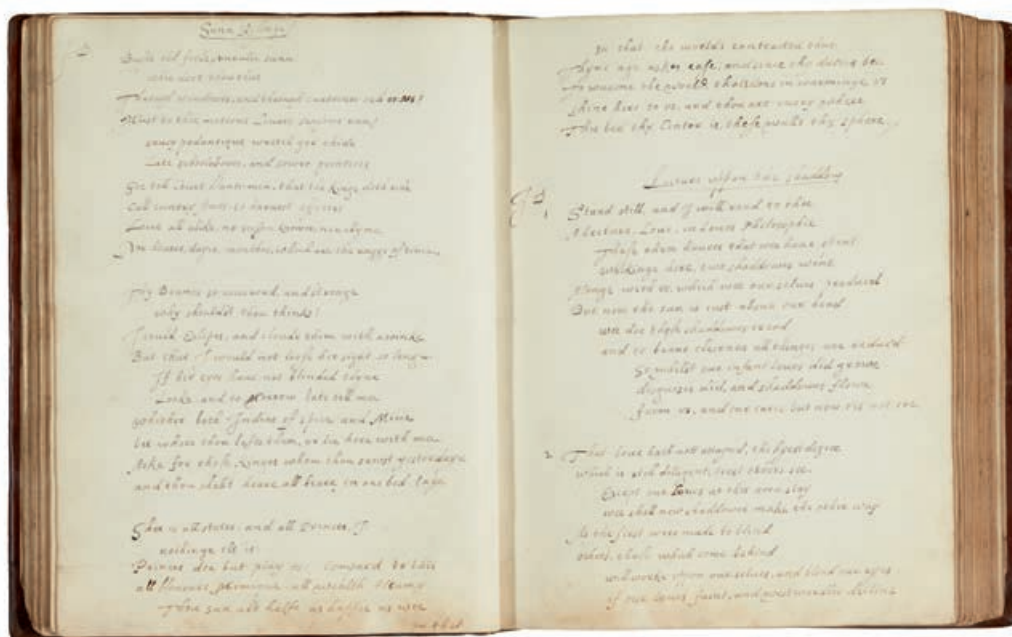 Busie old foole, unrulie sunn
why dost thou thus
Through windowes, and through curtaines
Must to thy motions Lovers seasons runn
saucy pedantique wretch goe chide
Late schooleboyes, and sower prentices
Goe tell Court Huntsmen, that the Kinge will ride
Call Country Ants to harvest offices
Love all alike, no season knowes, nor clyme
Nor houres, dayes, months, which are the raggs of time
Thy Beames so reverend, and stronge
why shouldst thou thinke?
I could Eclipse, and cloude them with a winke
But that I would not loose her sight so longe
If her eyes have not blinded thyne
Looke, and to morrow late tell me
whether both Indias of spice and Mine
bee where thou lefts them, or lie here with me
Aske for those Kinges whom thou sawst yesterdaye
and thou shalt heare all heere in one bed laye
Shee is all states, and all Princes, I
nothinge els is.
Princes doe but play us, compar'd to this
all Honours mimique, all wealth
Thou sun art halfe as happie as wee
In that the worlds contracted thus
Thyne age askes ease, and since thy duties bee
to warme the world, thats done in warminge us
Shine here to us, and thou art every where
This bed thy Center is, these walls thy sphere
Lecture uppon the shaddow
1
Stand still, and I will read to thee
A Lecture, Love, in Loves Philosophie
These three howres that wee have spent
walkinge here, two shaddowes went
Alonge with us, which wee our selves produced
But now the sun is just above our head
wee doe those shaddowes tread
and to brave clearnes all thinges are reduc'd
So whilst our infant loves did growe
disguises did, and shaddowes flowe
from us, and our cares, but now tis not soe
2
That love hath not attayned, the highest degree
which is still diligent, least others see
Except our loves at this noon stay
wee shall new shaddowes make the other way
As the first were made to blind
others, these which come behind
will worke upon our selves, and blind our eyes
If our loves faint, and westwardlie decline